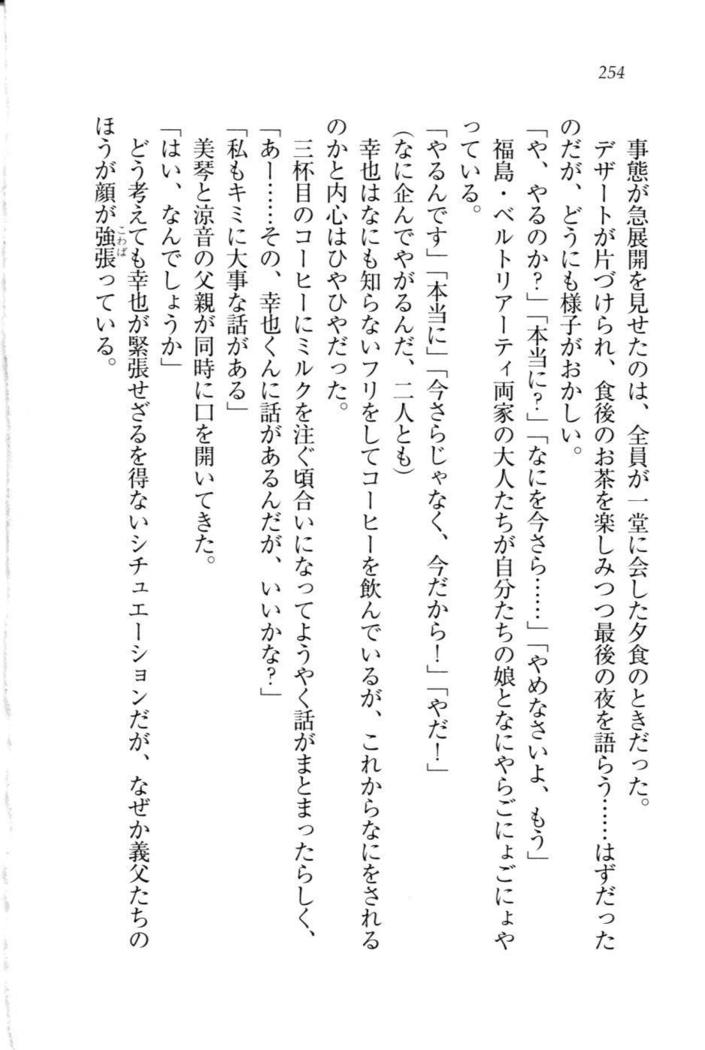 254
事態が急展開を見せたのは、全員が一堂に会した夕食のときだった。
デザートが片づけられ、食後のお茶を楽しみつつ最後の夜を語らう……はずだった
のだが、どうにも様子がおかしい。
「や、やるのか？」「本当に？」「なにを今さら……」「やめなさいよ、もう」
福島・ベルトリアーティ両家の大人たちが自分たちの娘となにやらごにょごにょや
っている。
「やるんです」「本当に」「今さらじゃなく、今だから！」「やだ！」
(なに企んでやがるんだ、二人とも)
幸也はなにも知らないフリをしてコーヒーを飲んでいるが、これからなにをされる
のかと内心はひやひやだった。
三杯目のコーヒーにミルクを注ぐ頃合いになってようやく話がまとまったらしく、
「あー……その、幸也くんに話があるんだが、いいかな？」
「私もキミに大事な話がある」
美琴と涼音の父親が同時に口を開いてきた。
「はい、なんでしょうか」
どう考えても幸也が緊張せざるを得ないシチュエーションだが、なぜか義父たちの
ほうが顔が強張っている。
こわば